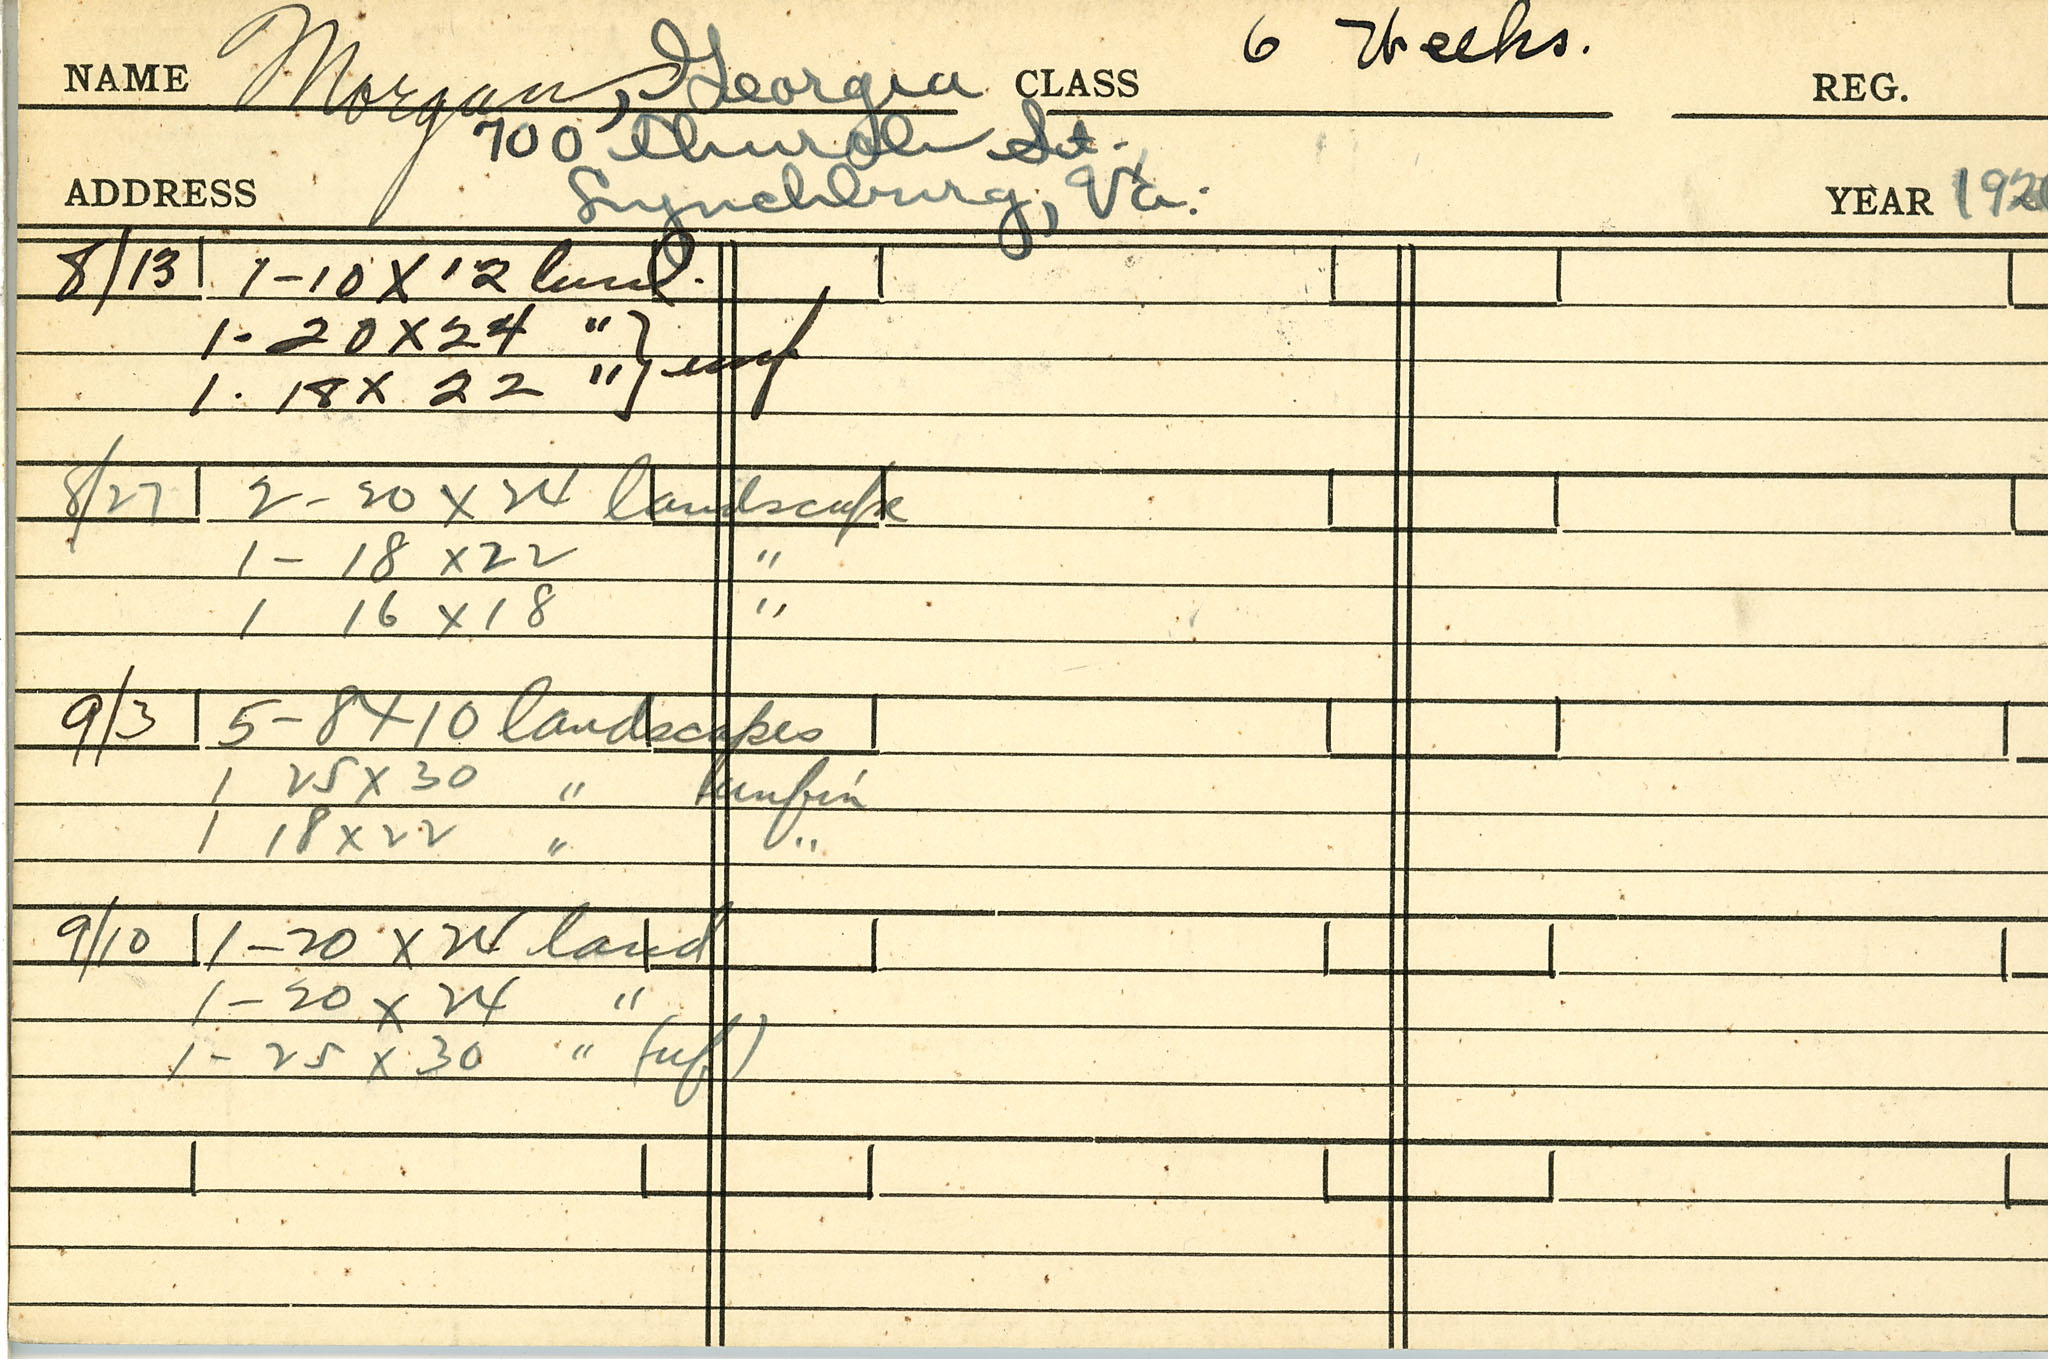 NAME Morgan, Georgia CLASS 6 Weeks. REG.
700 Church St.
ADDRESS Lynchburg, Va. YEAR 192
8/13 1-10 X 12 land.
1- 20 X 24 "
1. 18 X 22 " } unf
8/27 2 - 20 X 24 landscape
1 - 18 X 22 "
1 16 X 18 "
9/3 5 - 8 X 10 landscapes
1 25 X 30 "
1 18 X 22 " "
9/10 1 - 20 X 24 land
1 - 20 X 24 "
1 - 25 X 30 " (unf)